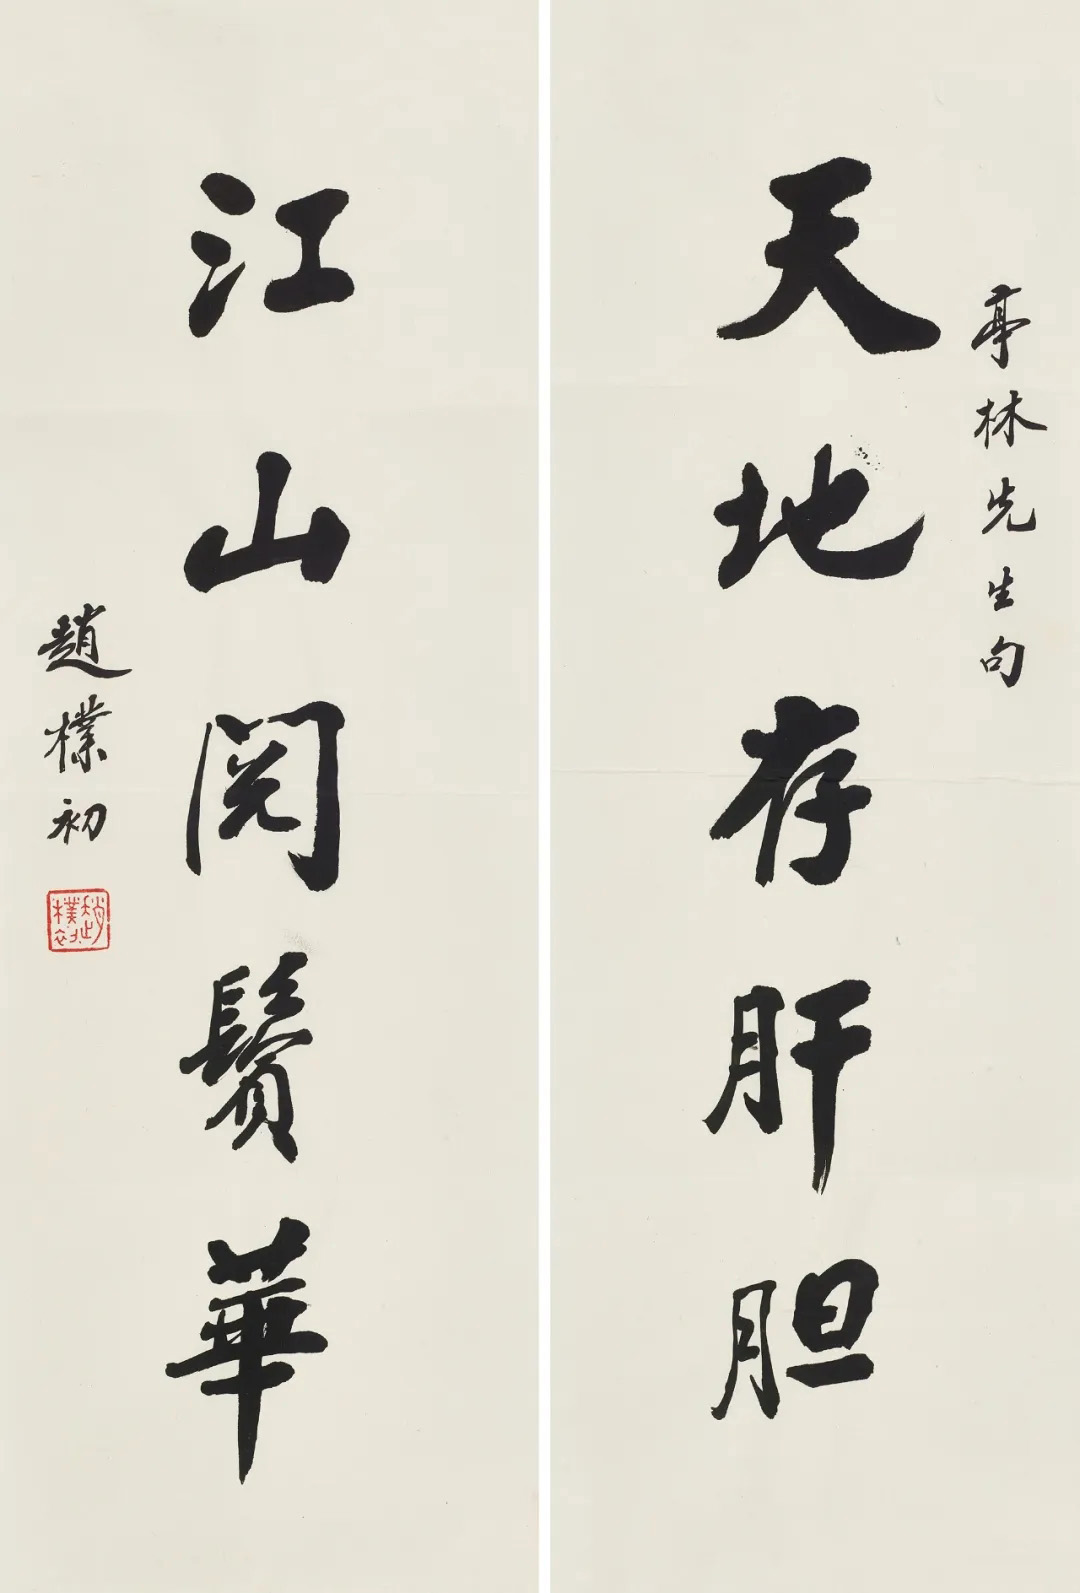 亭林先生句
天地存肝胆
江山阅鬓華
趙樸初
趙樸初